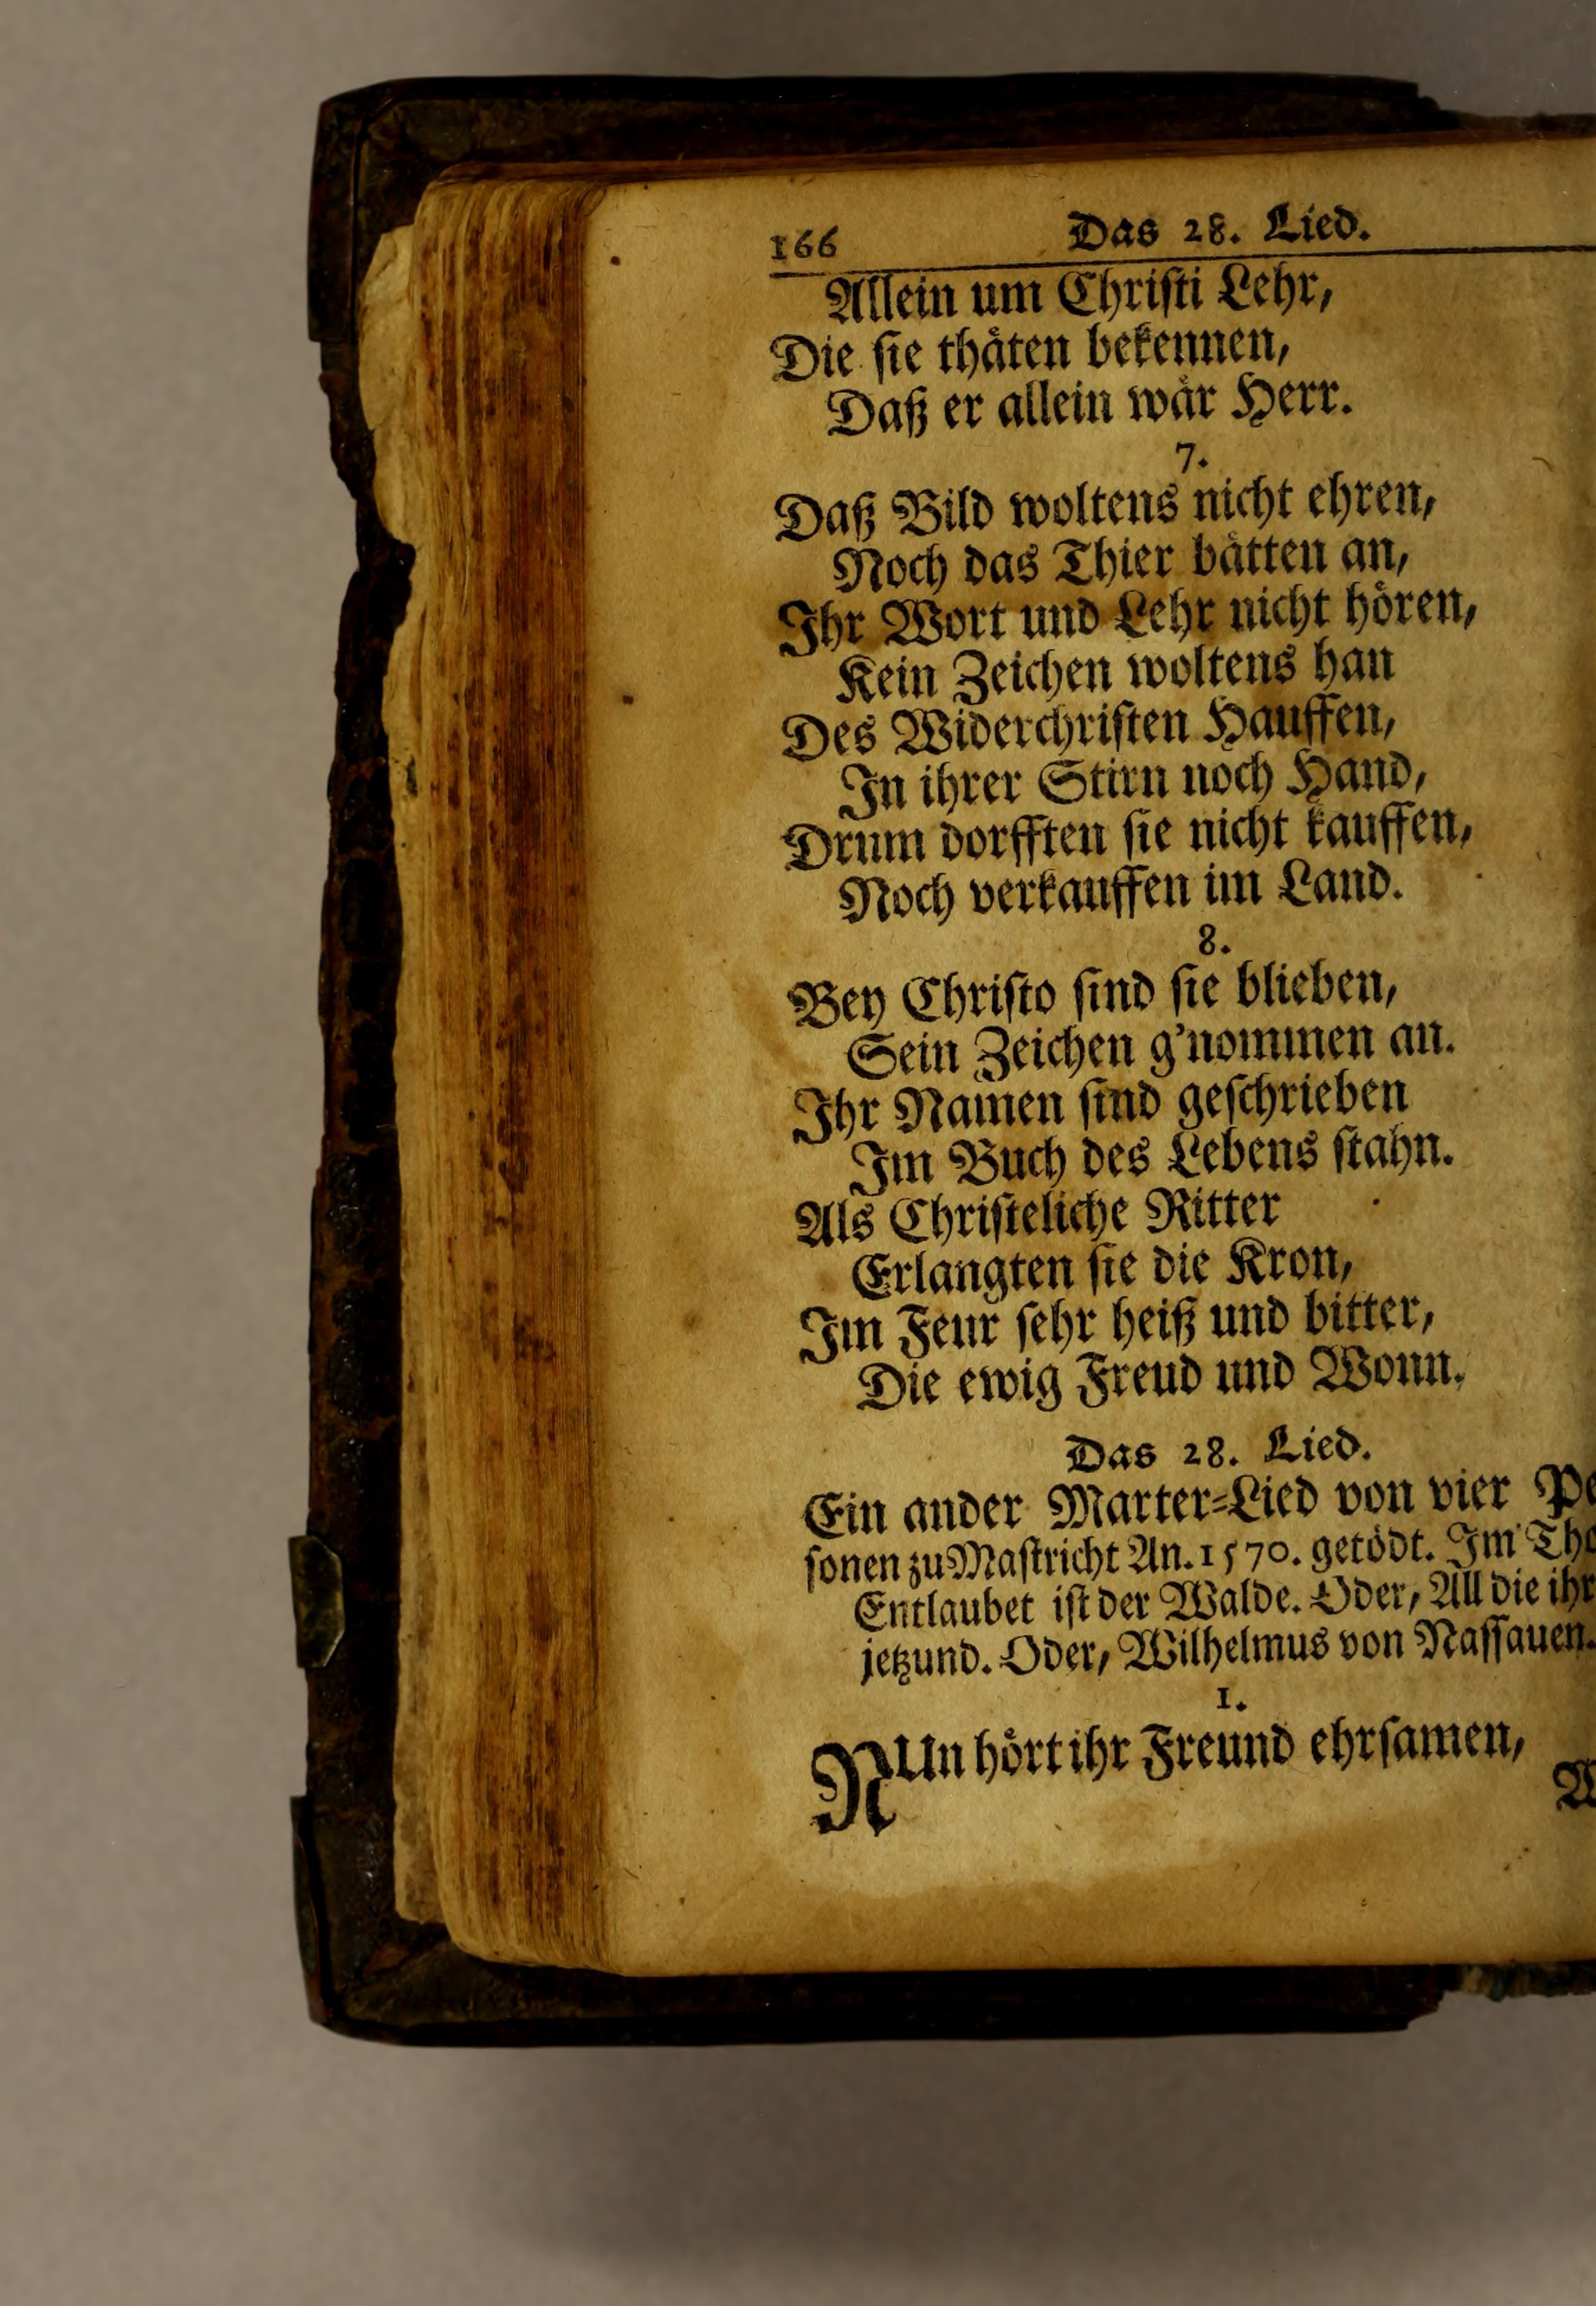 166 Das 28. Lied.
Allein um Christi Lehr,
Die sie thäten bekennen,
Daß er allein wär Herr.
7.
Daß Bild woltens nicht ehren,
Noch das Thier bätten an,
Ihr Wort und Lehr nicht hören,
Kein Zeichen woltens han
Des Widerchristen Hauffen,
In ihrer Stirn noch Hand,
Drum dorfften sie nicht kauffen,
Noch verkauffen im Land.
8.
Bey Christo sind sie blieben,
Sein Zeichen g'nommen an.
Ihr Namen sind geschrieben
Im Buch des Lebens stahn.
Als Christeliche Ritter
Erlangten sie die Kron,
Im Feur sehr heiß und bitter,
Die ewig Freud und Wonn.
Das 28. Lied.
Ein ander Marter=Lied von vier Pe
sonen zu Mastricht An. 1570. getödt. Im Tho
Entlaubet ist der Walde. Oder, All die ihr
jetzund. Oder, Wilhelmus von Nassauen.
1.
NUn hört ihr Freund ehrsamen,